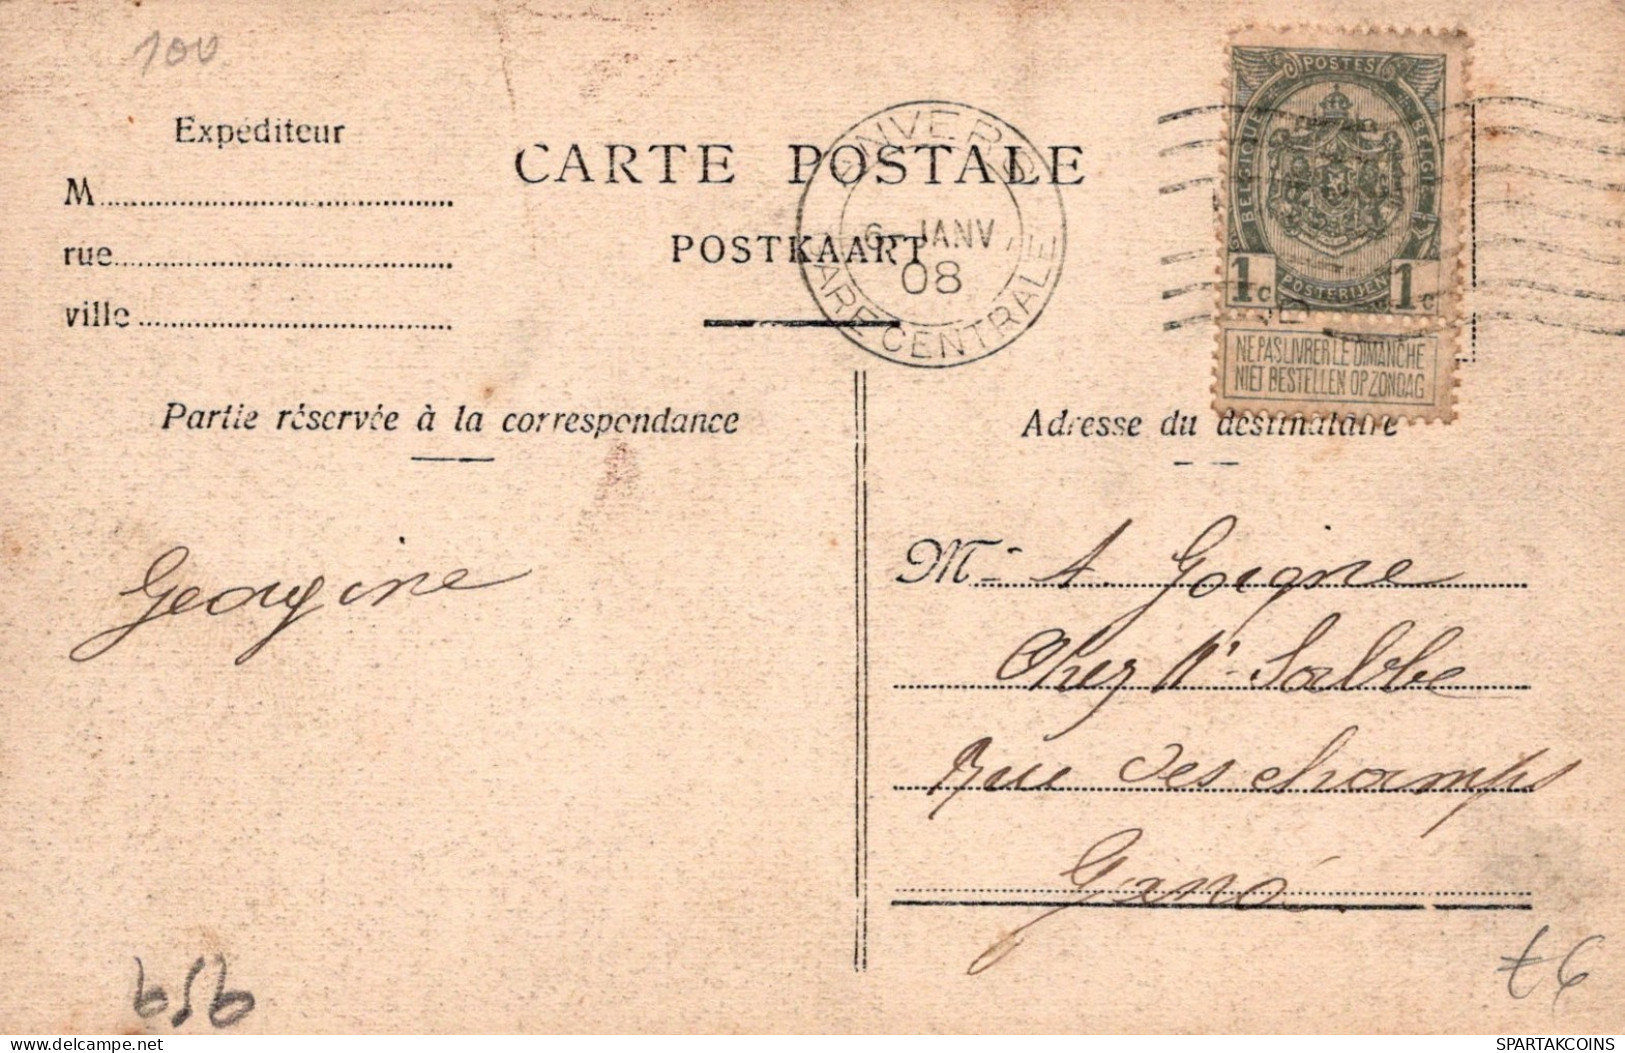 100
Expéditeur
M
rue
ville
CARTE POSTALE
POSTKAART
ANVERS
6 - JANV
08
GARE CENTRALE
POSTES
BELGIQUE
BELGIË
POSTERIJEN
1c 1c
NE PAS LIVRER LE DIMANCHE
NIET BESTELLEN OP ZONDAG
Partie réservée à la correspondance
Georgine
Adresse du destinataire
M A. Goigne
Chez Mr Sabbe
Rue des champs
Gand
SPARTAKCOINS